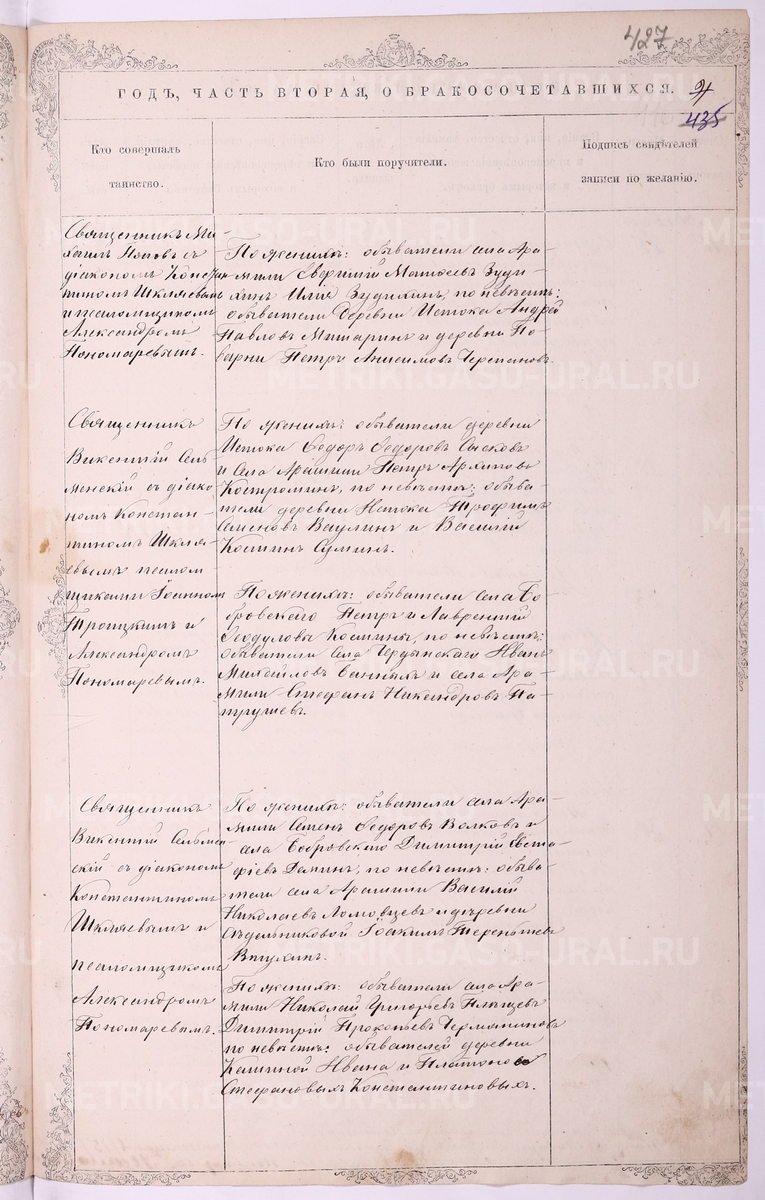 427
ГОДЪ, ЧАСТЬ ВТОРАЯ, О БРАКОСОЧЕТАВШИХСЯ.
435
Кто совершалъ
таинство.
Кто были поручители.
Подпись свидѣтелей
записи по желанію.
Священникъ Ми-
хаилъ Поповъ съ
діакономъ Констан
тиномъ Шкляевымъ
и псаломщикомъ
Александромъ
Пономаревымъ.
По женихѣ: обыватели села Ара-
мили Евгеній Матѳеевъ Зуди-
хинъ Илія Зудихинъ, по невѣстѣ:
обыватели деревни Истока Андрей
Павловъ Митаринъ и деревни По-
варни Петръ Анисимовъ Черепановъ.
Священникъ
Викентій Сель
менскій съ діако
номъ Констан-
тиномъ Шкля-
евымъ псалом
щиками Іоанномъ
Троицкимъ и
Александромъ
Пономаревымъ.
По женихѣ: обыватели деревни
Истока Ѳедоръ Ѳедоровъ Сысковъ
и села Арамили Петръ Архиповъ
Костроминъ, по невѣстѣ: обыва-
тели деревни Истока Трофимъ
Семеновъ Ваулинъ и Василій
Косминъ Суминъ.
По женихѣ: обыватели села Бо-
бровскаго Петръ и Лаврентій
Ѳеодуловы Космины, по невѣстѣ:
обыватели села Иванъ
Михайловъ и села Ара-
мили Стефанъ Никандровъ Па-
трушевъ.
Священникъ
Викентій Сельмен
скій съ діакономъ
Константиномъ
Шкляевымъ и
псаломщикомъ
Александромъ
Пономаревымъ.
По женихѣ: обыватели села Ара-
мили Семенъ Ѳедоровъ Волковъ и
села Бобровскаго Димитрій Евста-
фіевъ Деминъ, по невѣстѣ: обыва-
тели села Арамили Василій
Николаевъ Ломовцевъ и деревни
Сѣдельниковой Іоакимъ Терентьевъ
Втулкинъ.
По женихѣ: обыватели села Ара-
мили Николай Григорьевъ Плещевъ
Димитрій Прокопьевъ Чермяниновъ
по невѣстѣ: обывателей деревни
Кашиной Ивана и Платона
Стефановыхъ Константиновыхъ.
METRIKI.GASO-URAL.RU